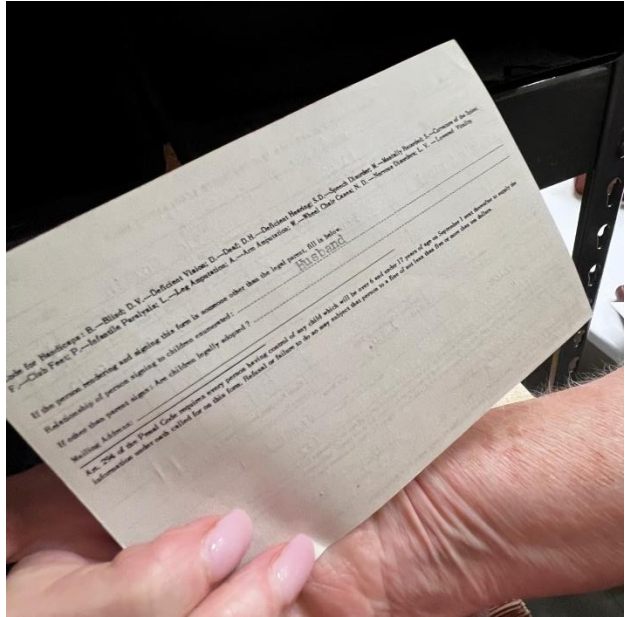 ode for Handicaps: B.—Blind; D.V.—Deficient Vision; D.—Deaf; D.H.—Deficient Hearing; S.D.—Speech Disorder; M.—Mentally Retarded; S.—Curvature of the Spine;
F.—Club Feet; P.—Infantile Paralysis; L.—Leg Amputation; A.—Arm Amputation; W.—Wheel Chair Cases; N. D.—Nervous Disorders; L. V.—Lowered Vitality.
If the person rendering and signing this form is someone other than the legal parent, fill in below:
Relationship of person signing to children enumerated: Husband
If other than parent signs: Are children legally adopted?
Mailing Address:
Art. 294 of the Penal Code requires every person having control of any child which will be over 6 and under 17 years of age on September 1 next thereafter to supply the
information under oath called for on this form. Refusal or failure to do so may subject that person to a fine of not less than five or more than ten dollars.